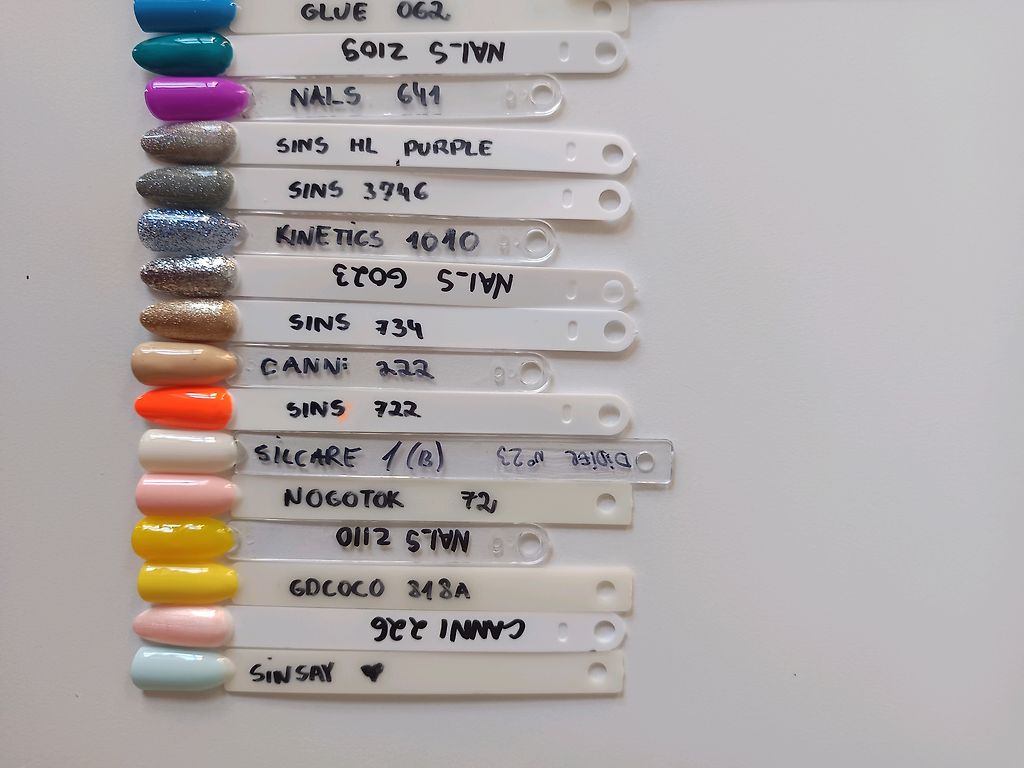 GLUE 062
NAILS Z109
NAILS 641
SINS HL PURPLE
SINS 3746
KINETICS 1010
NAILS G023
SINS 734
CANNi 222
SINS 722
SiLCARE 1 (B) Didier Nº23
NOGOTOK 72
NAILS Z110
GDCOCO 818A
CANNI 226
SiNSAY ♥